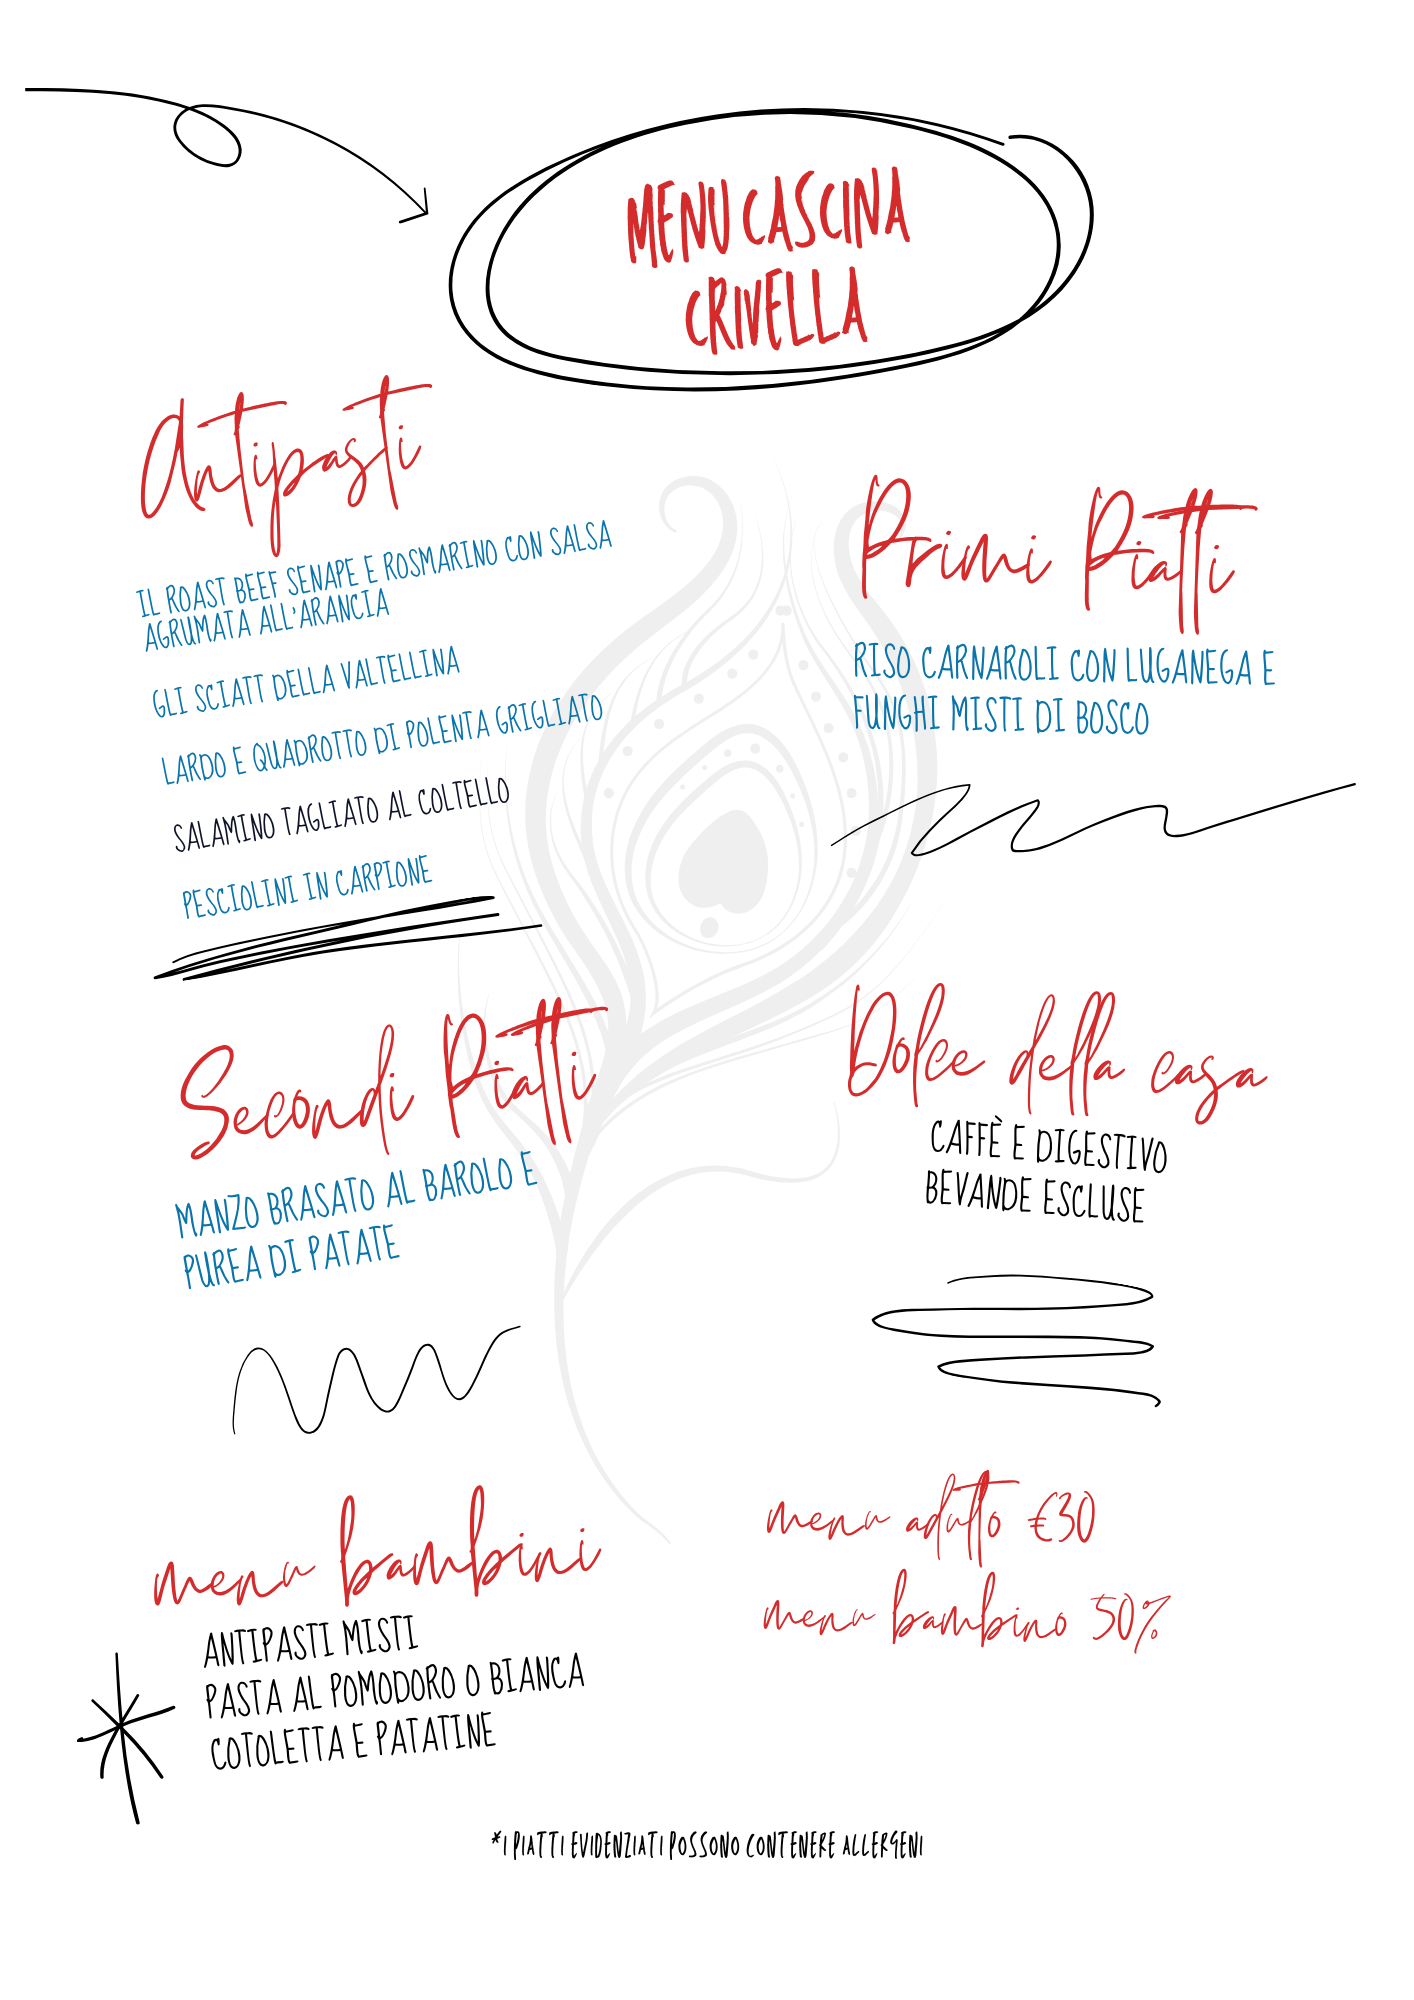 MENU CASCINA
CRIVELLA
Antipasti
IL ROAST BEEF SENAPE E ROSMARINO CON SALSA
AGRUMATA ALL'ARANCIA
GLI SCIATT DELLA VALTELLINA
LARDO E QUADROTTO DI POLENTA GRIGLIATO
SALAMINO TAGLIATO AL COLTELLO
PESCIOLINI IN CARPIONE
Primi Piatti
RISO CARNAROLI CON LUGANEGA E
FUNGHI MISTI DI BOSCO
Secondi Piatti
MANZO BRASATO AL BAROLO E
PUREA DI PATATE
Dolce della casa
CAFFÈ E DIGESTIVO
BEVANDE ESCLUSE
menu bambini
ANTIPASTI MISTI
PASTA AL POMODORO O BIANCA
COTOLETTA E PATATINE
menu adulto €30
menu bambino 50%
*I PIATTI EVIDENZIATI POSSONO CONTENERE ALLERGENI